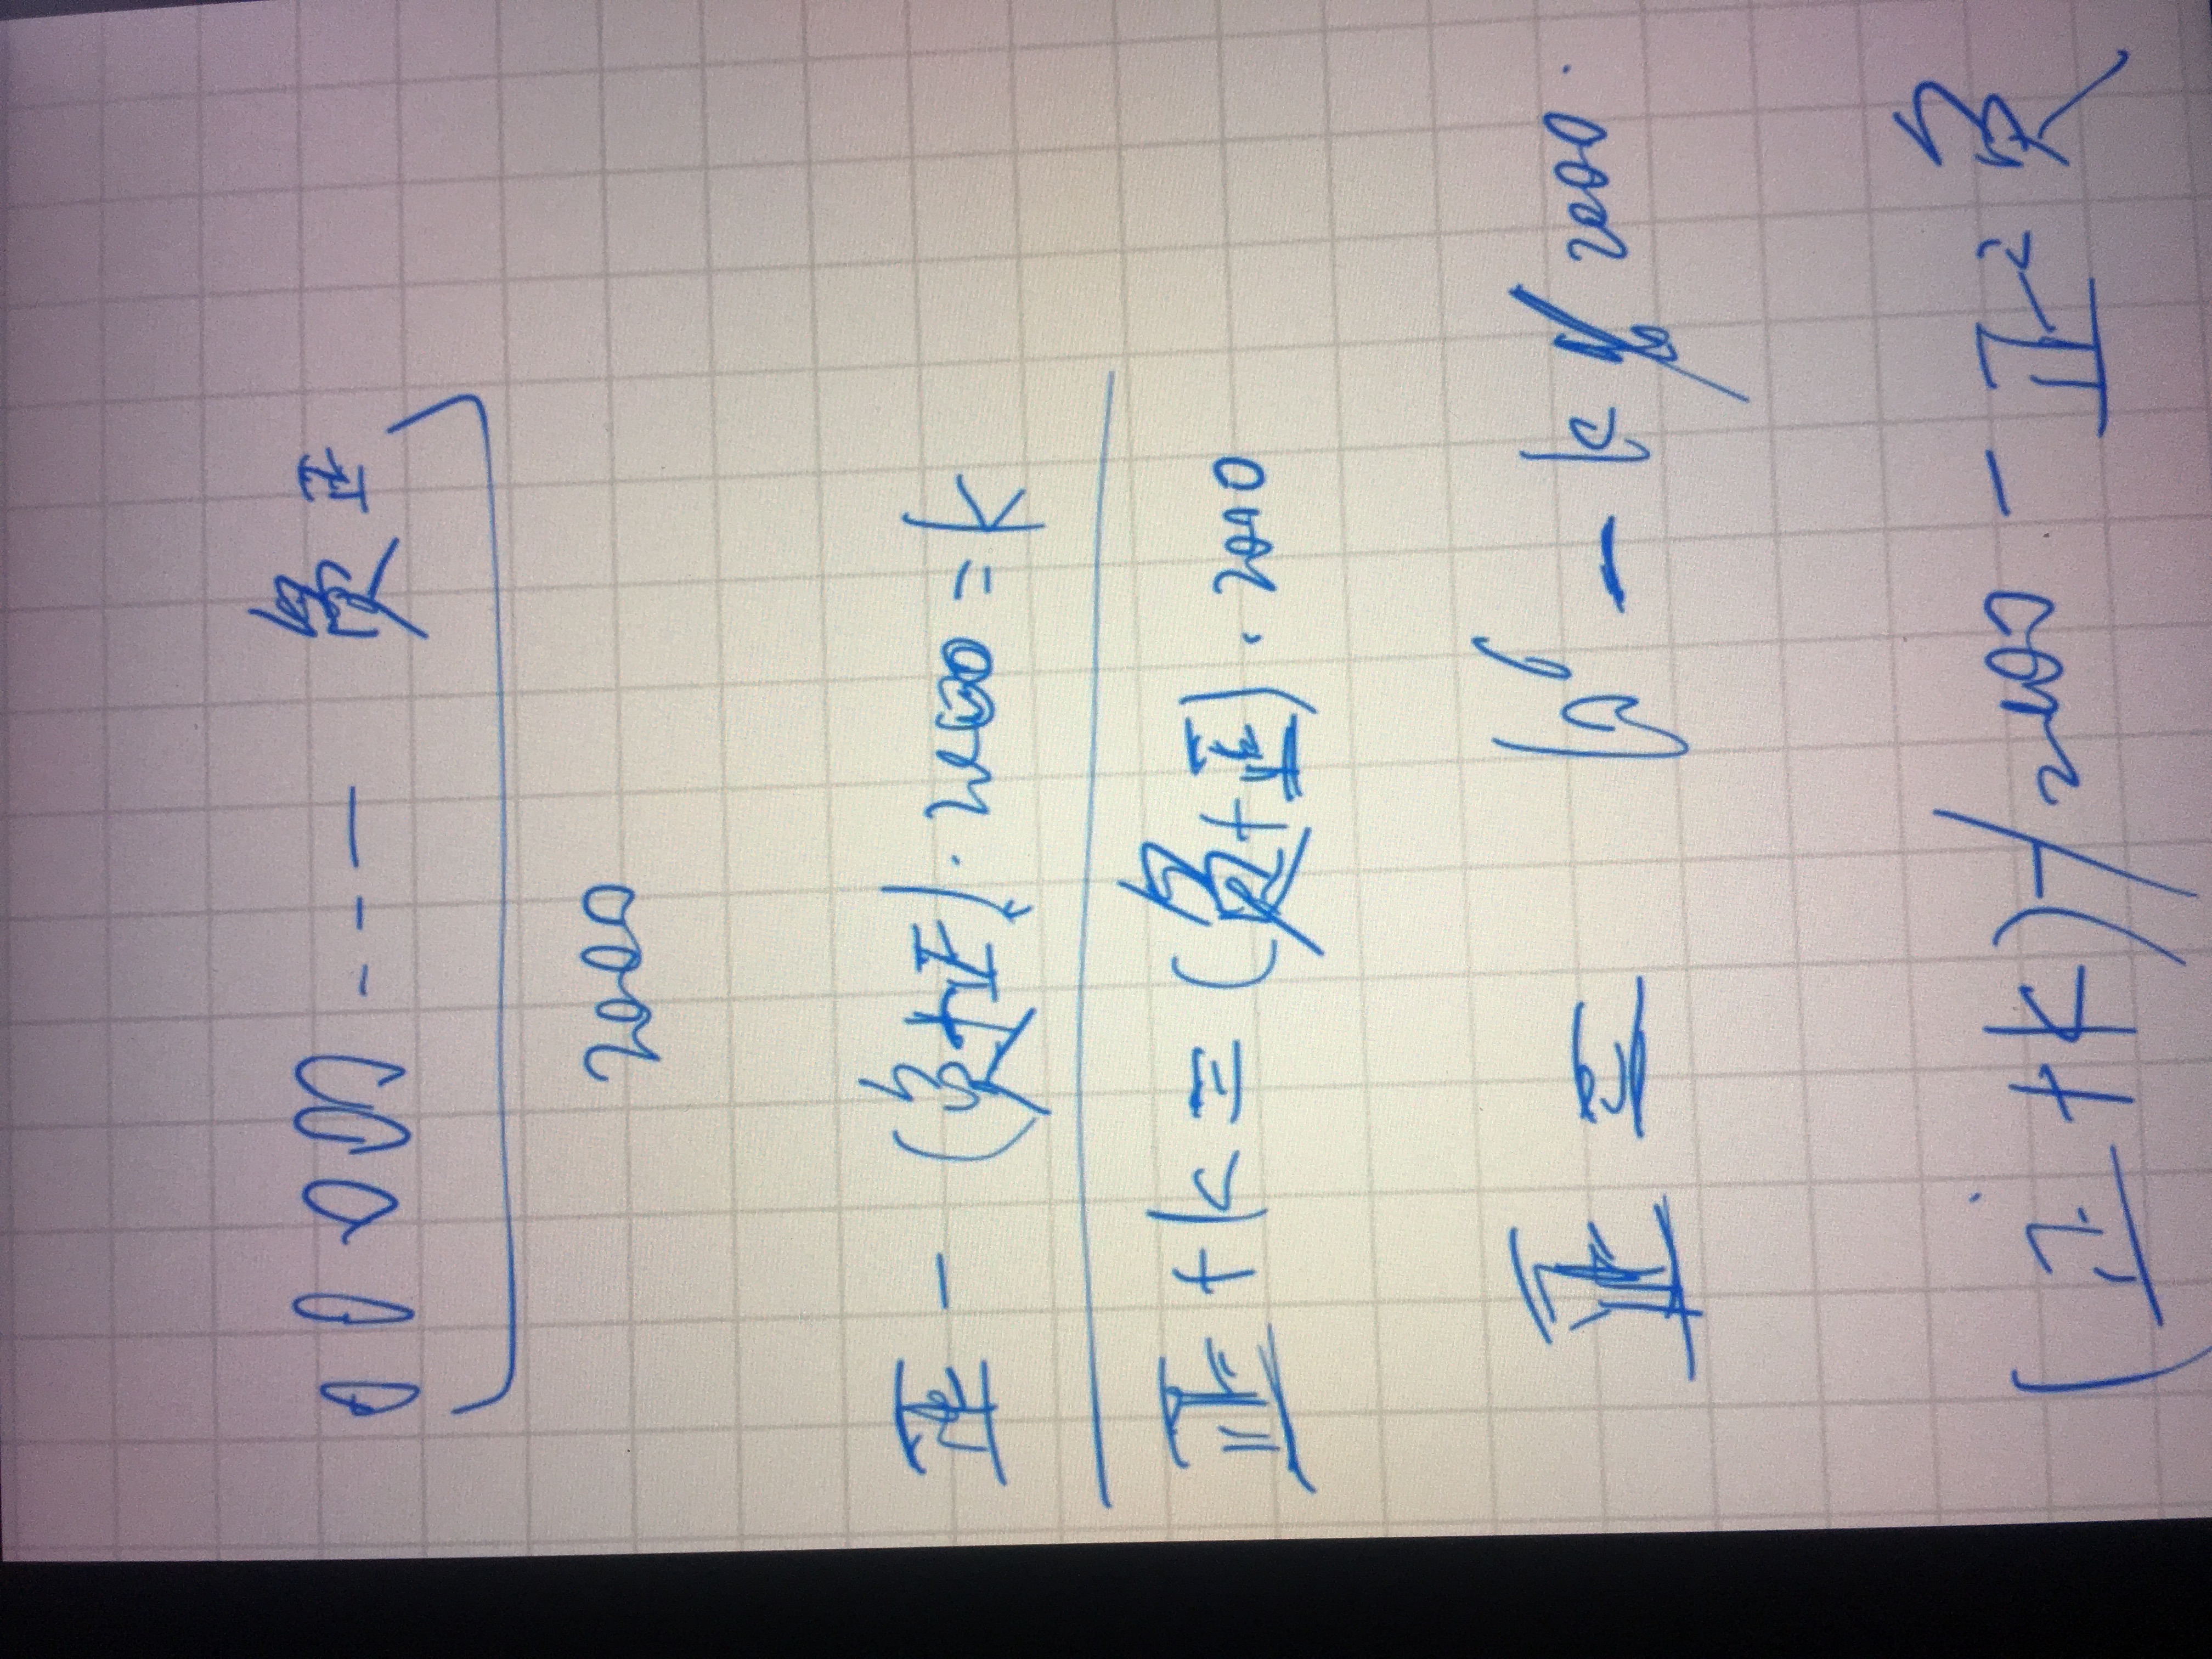 00000 --- 负 正
2000
正 - (负+正) · 2000 = k
正 + k = (负+正) · 2000
正 = 10⁶ - k % 2000 .
(正 + k) / 2000 - 正 = 负